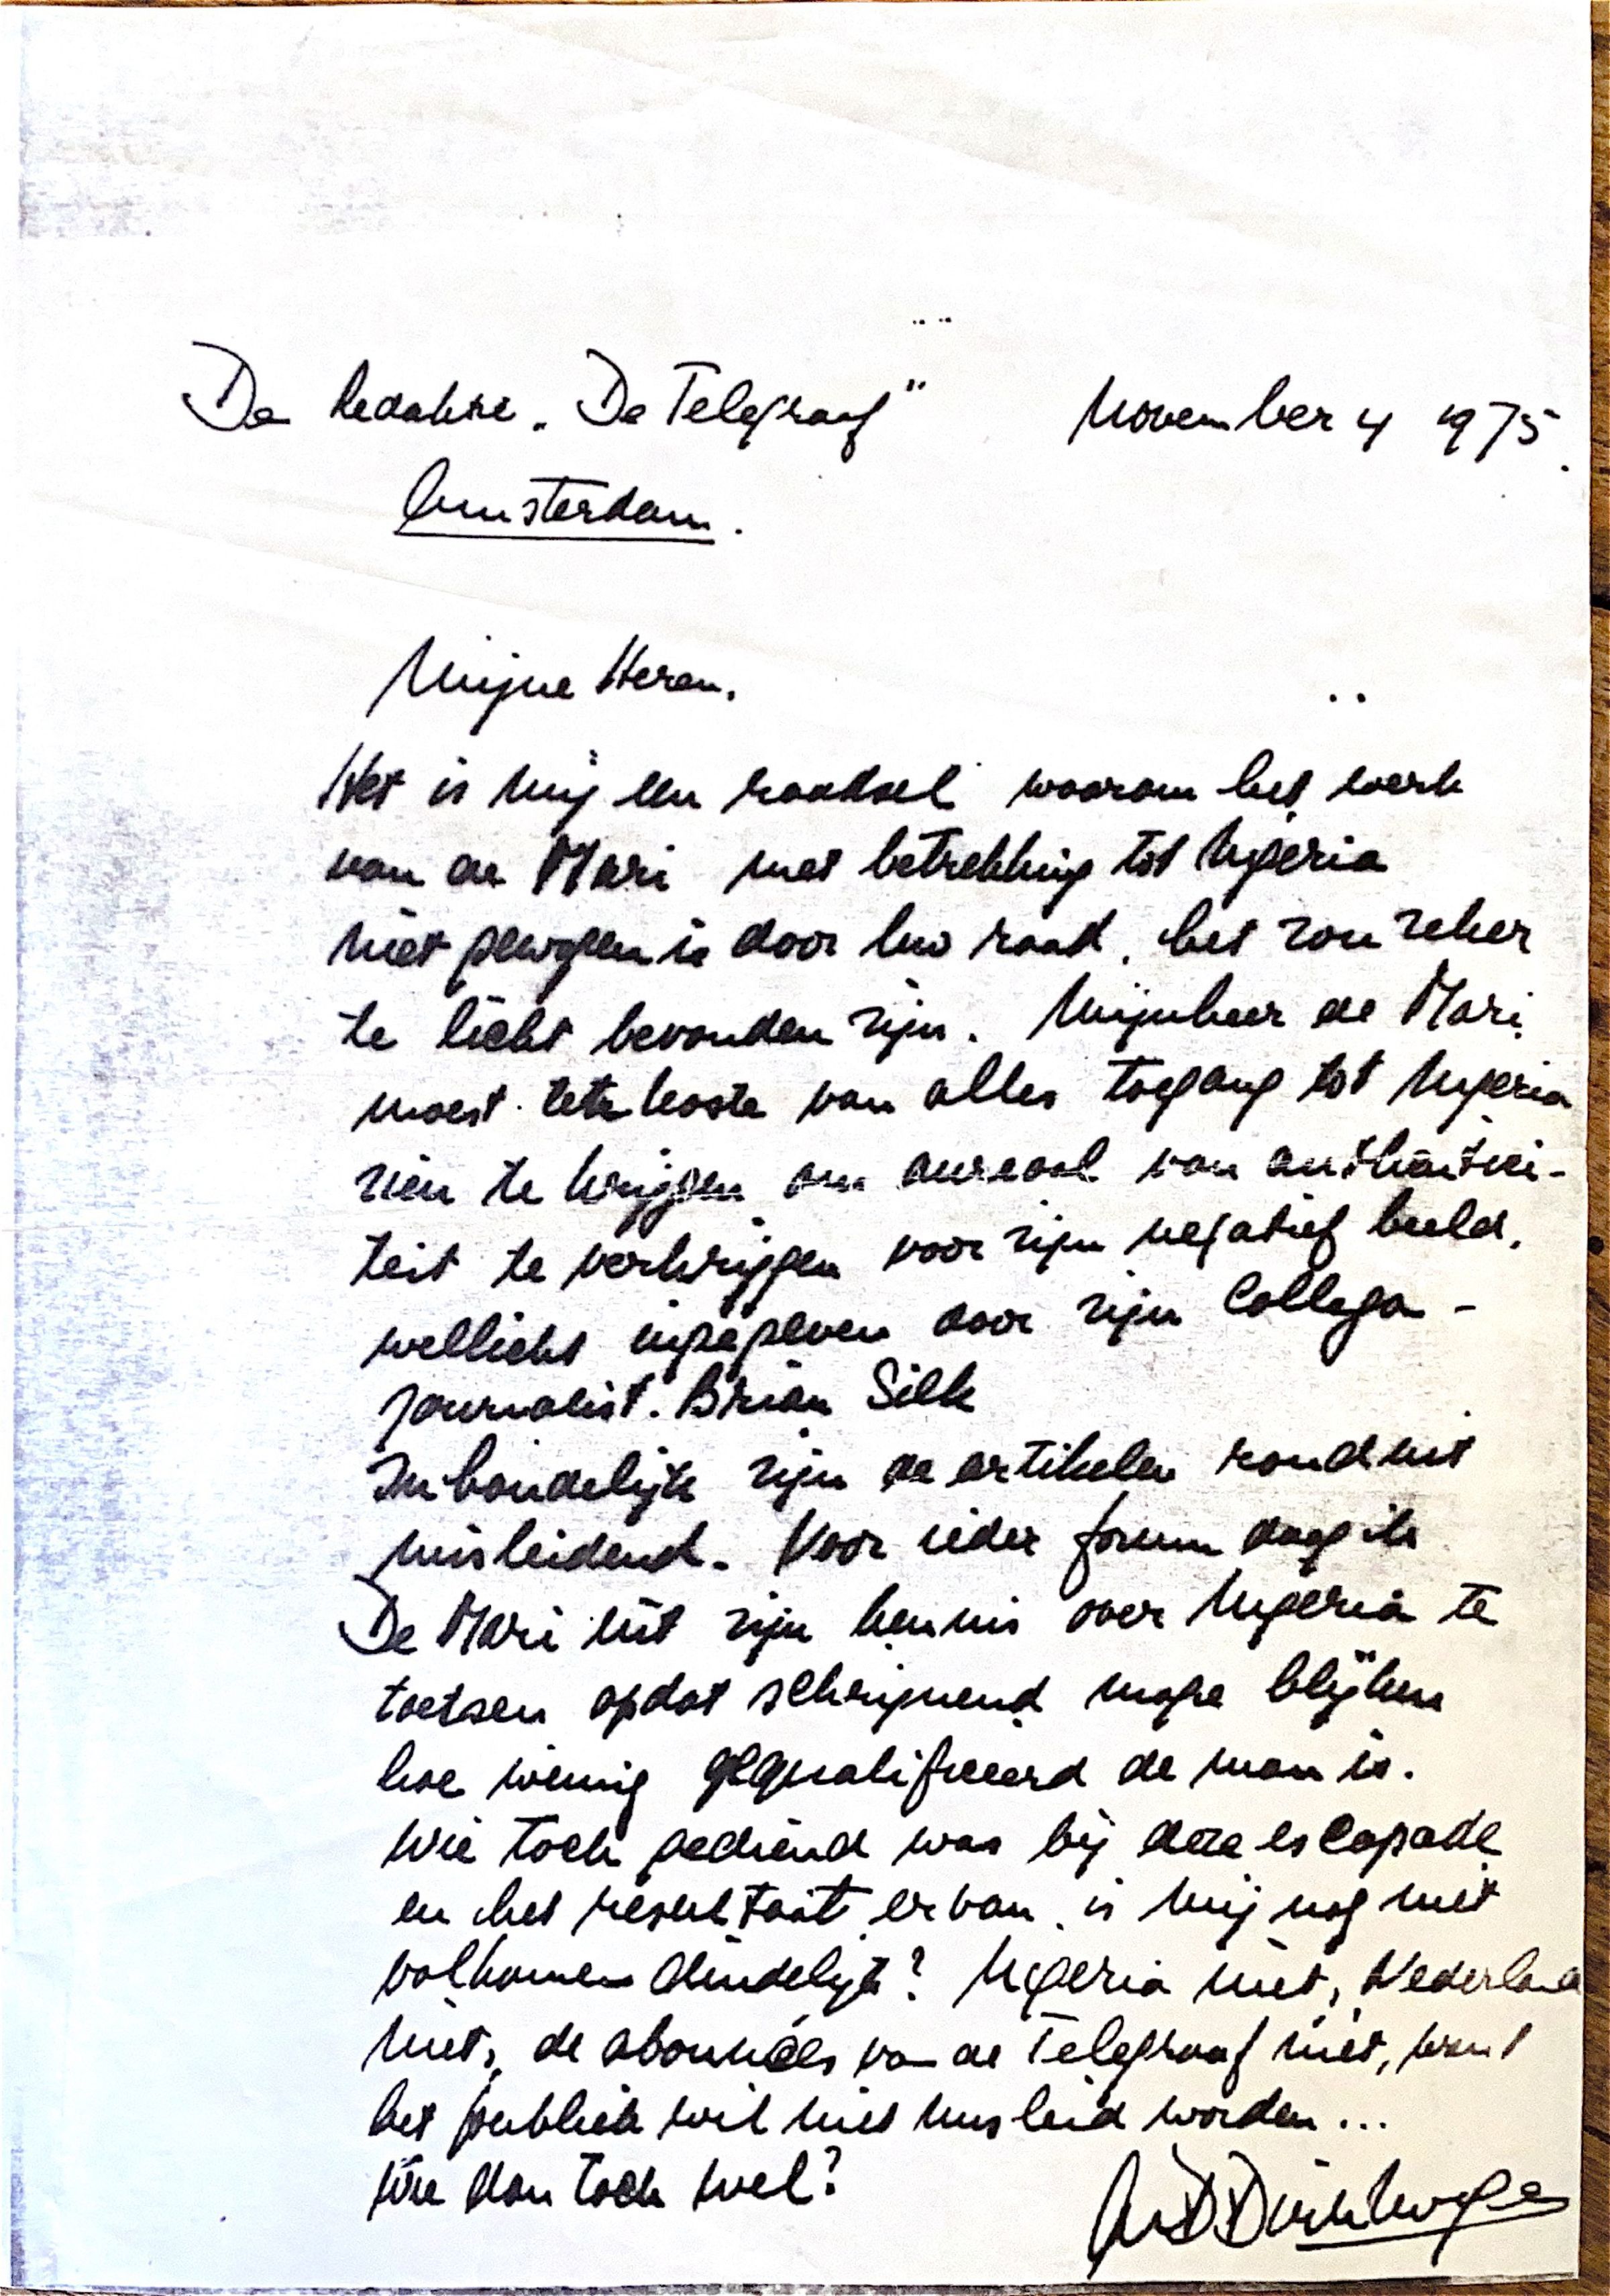 De Redaktie „De Telegraaf" November 4 1975.
Amsterdam.
Mijne Heren,
Het is mij een raadsel waarom het werk
van de Mari met betrekking tot Nigeria
niet gewogen is door uw raad, het zou zeker
te licht bevonden zijn. Mijnheer de Mari
moest ten koste van alles toegang tot Nigeria
zien te krijgen om aureool van authentici-
teit te verkrijgen voor zijn negatief beeld,
wellicht ingegeven door zijn Collega-
journalist. Brian Silk
Inhoudelijk zijn de artikelen ronduit
misleidend. Voor ieder forum daag ik
De Mari uit zijn kennis over Nigeria te
toetsen opdat schrijnend moge blijken
hoe weinig gequalificeerd de man is.
Wie toch gediend was bij deze escapade
en het resultaat ervan, is mij nog niet
volkomen duidelijk? Nigeria niet, Nederland
niet, de abonnées van de Telegraaf niet, want
het publiek wil niet misleid worden...
Wie dan toch wel?